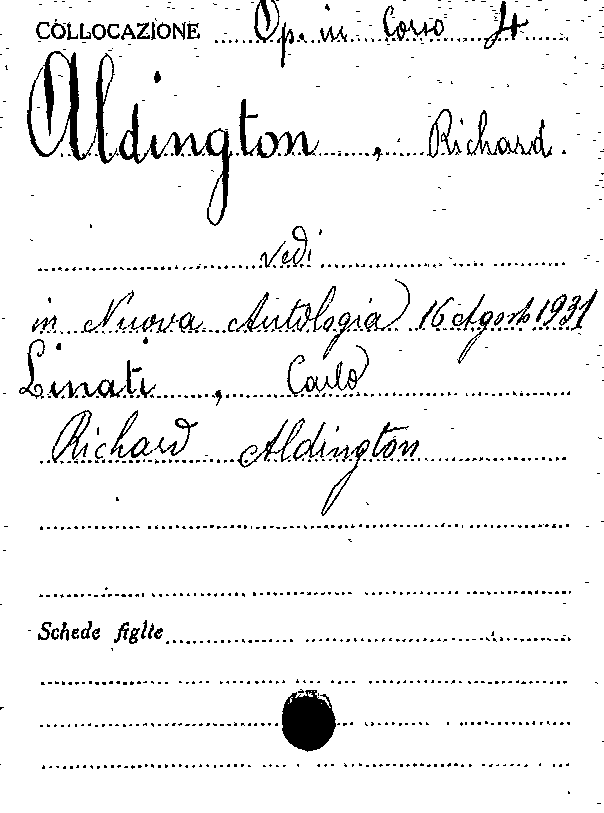 COLLOCAZIONE Op. in Corso 4
Aldington, Richard.
vedi
in Nuova Antologia 16 Agosto 1931
Linati, Carlo
Richard Aldington
Schede figlie